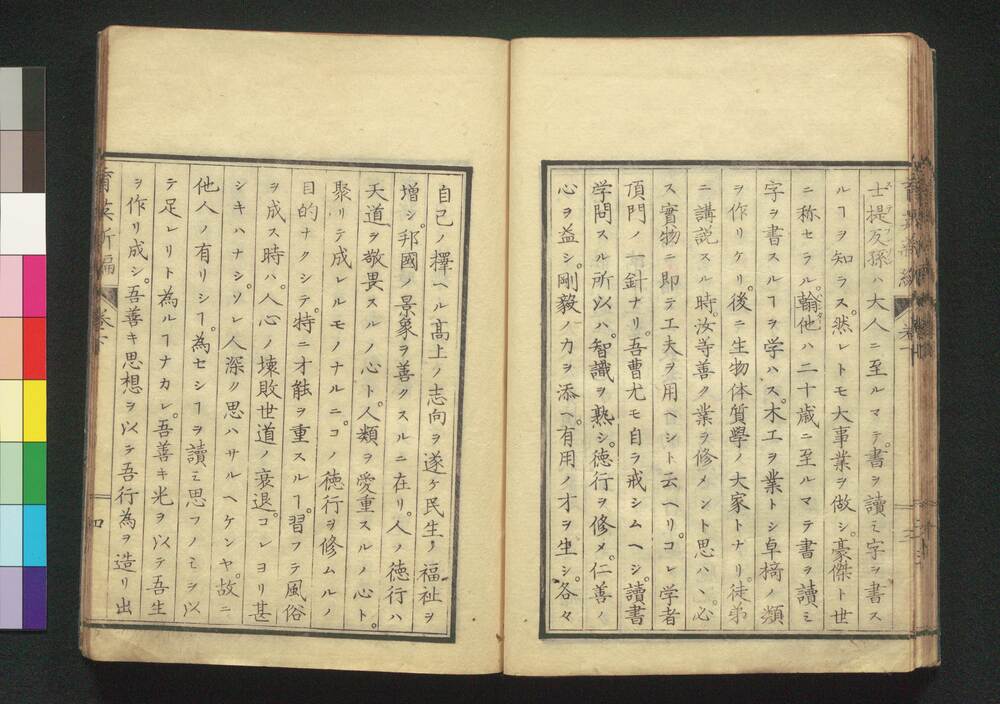 士提反孫ハ大人ニ至ルマデ。書ヲ讀ミ字ヲ書ス
ルヿヲ知ラス。然レトモ大事業ヲ做シ。豪傑ト世
ニ称セラル。翰他ハ二十歳ニ至ルマテ書ヲ讀ミ
字ヲ書スルヿヲ学ハス。木工ヲ業トシ卓椅ノ類
ヲ作リケリ。後ニ生物体質學ノ大家トナリ。徒弟
ニ講説スル時。汝等善ク業ヲ修メント思ハヽ。必
ス實物ニ即テ工夫ヲ用ヘシト云ヘリ。コレ学者
頂門ノ一針ナリ。吾曹尤モ自ラ戒シムヘシ。讀書
学問スル所以ハ。智識ヲ熟シ。徳行ヲ修メ。仁善ノ
心ヲ益シ。剛毅ノカヲ添ヘ。有用ノオヲ生シ。各々
自己ノ擇ヘル高上ノ志向ヲ遂ケ民生ノ福祉ヲ
増シ。邦國ノ景象ヲ善クスルニ在リ。人ノ徳行ハ
天道ヲ敬畏スルノ心ト。人類ヲ愛重スルノ心ト。
聚リテ成レルモノナルニ。コノ徳行ヲ修ムルノ
目的ナクシテ。特ニ才能ヲ重スルヿ。習フテ風俗
ヲ成ス時ハ。人心ノ壊敗世道ノ衰退。コレヨリ甚
シキハナシ。ソレ人深ク思ハサルヘケンヤ。故ニ
他人ノ有リシヿ。為セシヿヲ讀ミ思フノミヲ以
テ足レリト為ルヿナカレ。吾善キ光ヲ以テ吾生
ヲ作リ成シ。吾善キ思想ヲ以テ吾行為ヲ造リ出